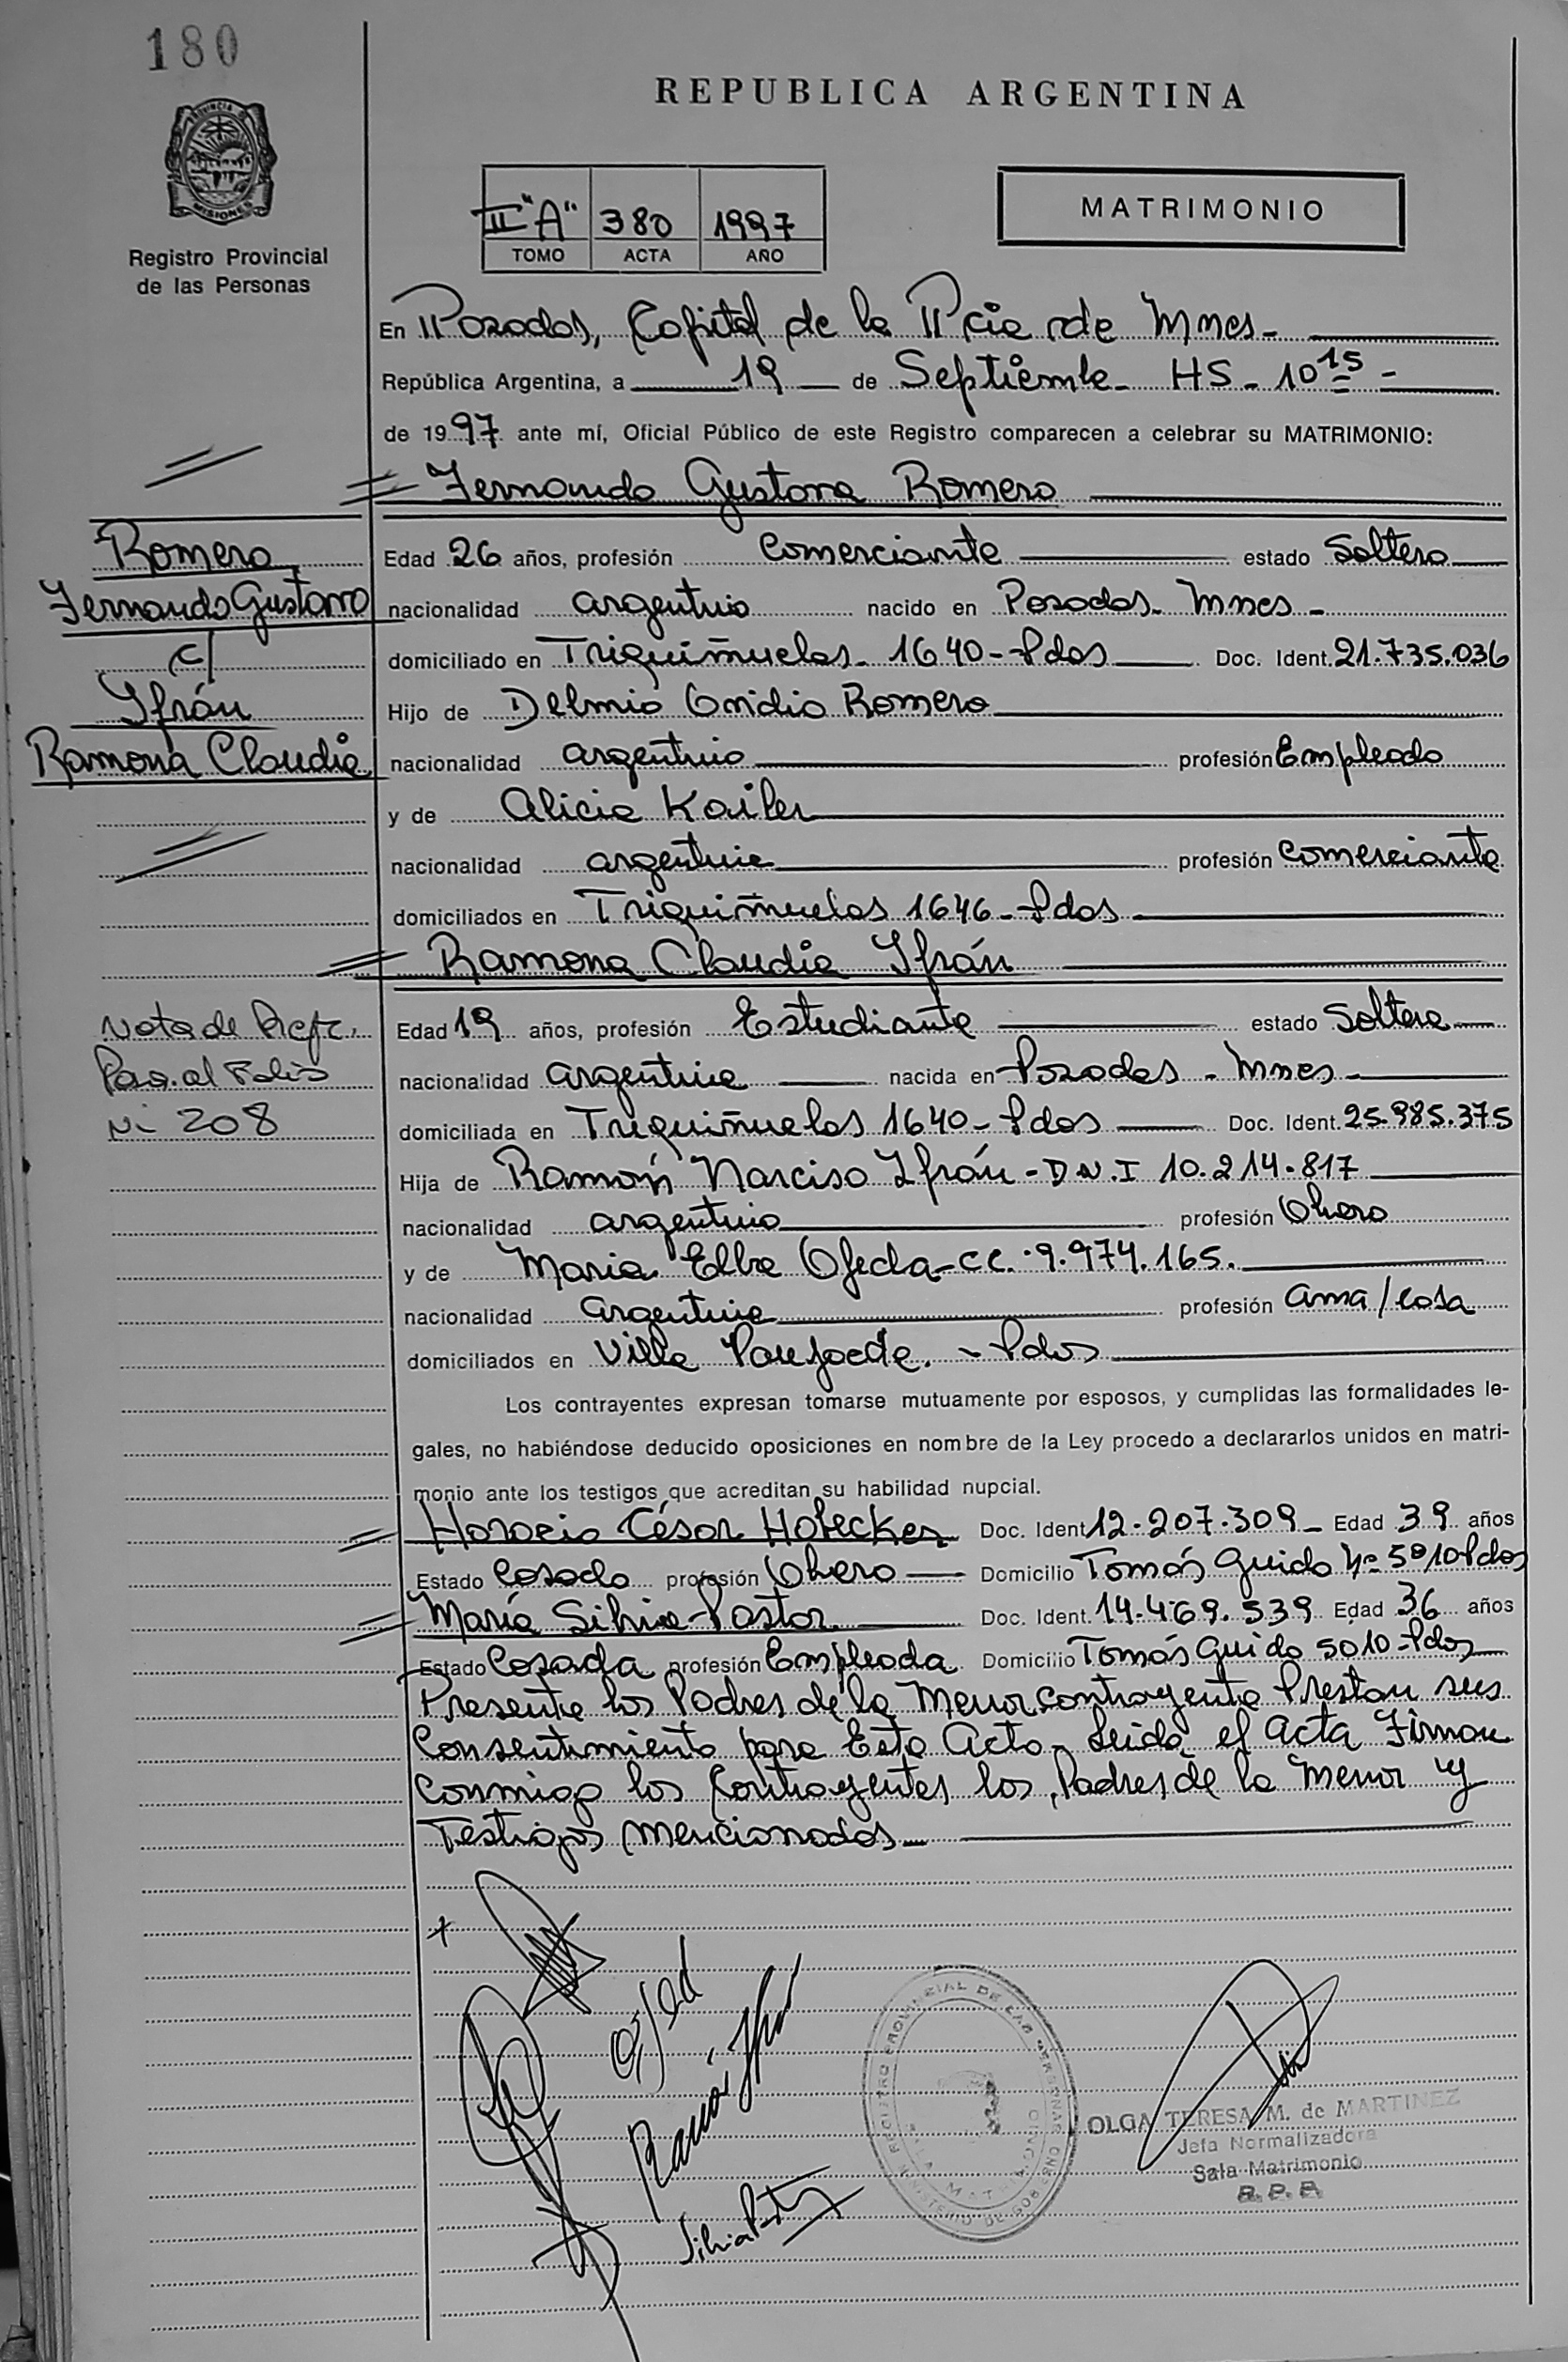 180
REPUBLICA ARGENTINA
PROVINCIA
MISIONES
Registro Provincial
de las Personas
II "A" 380 1997
TOMO ACTA AÑO
MATRIMONIO
En Posadas, Capital de la Pcia de Mnes-
República Argentina, a 19 de Septiembre HS- 10 15 -
de 1997 ante mí, Oficial Público de este Registro comparecen a celebrar su MATRIMONIO:
Fernando Gustavo Romero
Romero
Fernando Gustavo
c/
Ifrán
Ramona Claudia
Edad 26 años, profesión Comerciante estado Soltero
nacionalidad argentino nacido en Posadas- Mnes-
domiciliado en Triquiñuelas- 1640- Pdas Doc. Ident. 21.735.036
Hijo de Delmio Ovidio Romero
nacionalidad argentino profesión Empleado
y de Alicia Kailer
nacionalidad argentina profesión Comerciante
domiciliados en Triquiñuelas 1646- Pdas
Ramona Claudia Ifrán
Nota de Refe.
Pas. al Folio
Nº 208
Edad 19 años, profesión Estudiante estado Soltera
nacionalidad argentina nacida en Posadas - Mnes-
domiciliada en Triquiñuelas 1640- Pdas Doc. Ident. 25.985.375
Hija de Ramón Narciso Ifrán - D.N.I 10.214.817
nacionalidad argentino profesión Obrero
y de Maria Elba Ojeda- CC. 9.974.165.
nacionalidad Argentina profesión ama/casa
domiciliados en Villa - Pdas
Los contrayentes expresan tomarse mutuamente por esposos, y cumplidas las formalidades le-
gales, no habiéndose deducido oposiciones en nombre de la Ley procedo a declararlos unidos en matri-
monio ante los testigos que acreditan su habilidad nupcial.
Horacio César Hobecker Doc. Ident. 12.207.309- Edad 39 años
Estado Casado profesión Obrero Domicilio Tomás Guido Nº 5010 Pdas
María Silvia Pastor Doc. Ident. 14.469.539 Edad 36 años
Estado Casada profesión Empleada Domicilio Tomás Guido 5010-Pdas
Presente los Padres de la Menor contrayente Prestan sus
Consentimiento para Este Acto- Leida el acta Firman
Conmigo los Contrayentes los Padres de la Menor y
Testigos mencionados-
Ojed
Ramón Ifrán
Silvia Pastor
REGISTRO PROVINCIAL DE LAS PERSONAS
OLGA TERESA M. de MARTINEZ
Jefa Normalizadora
Sala Matrimonio
R. P. P.